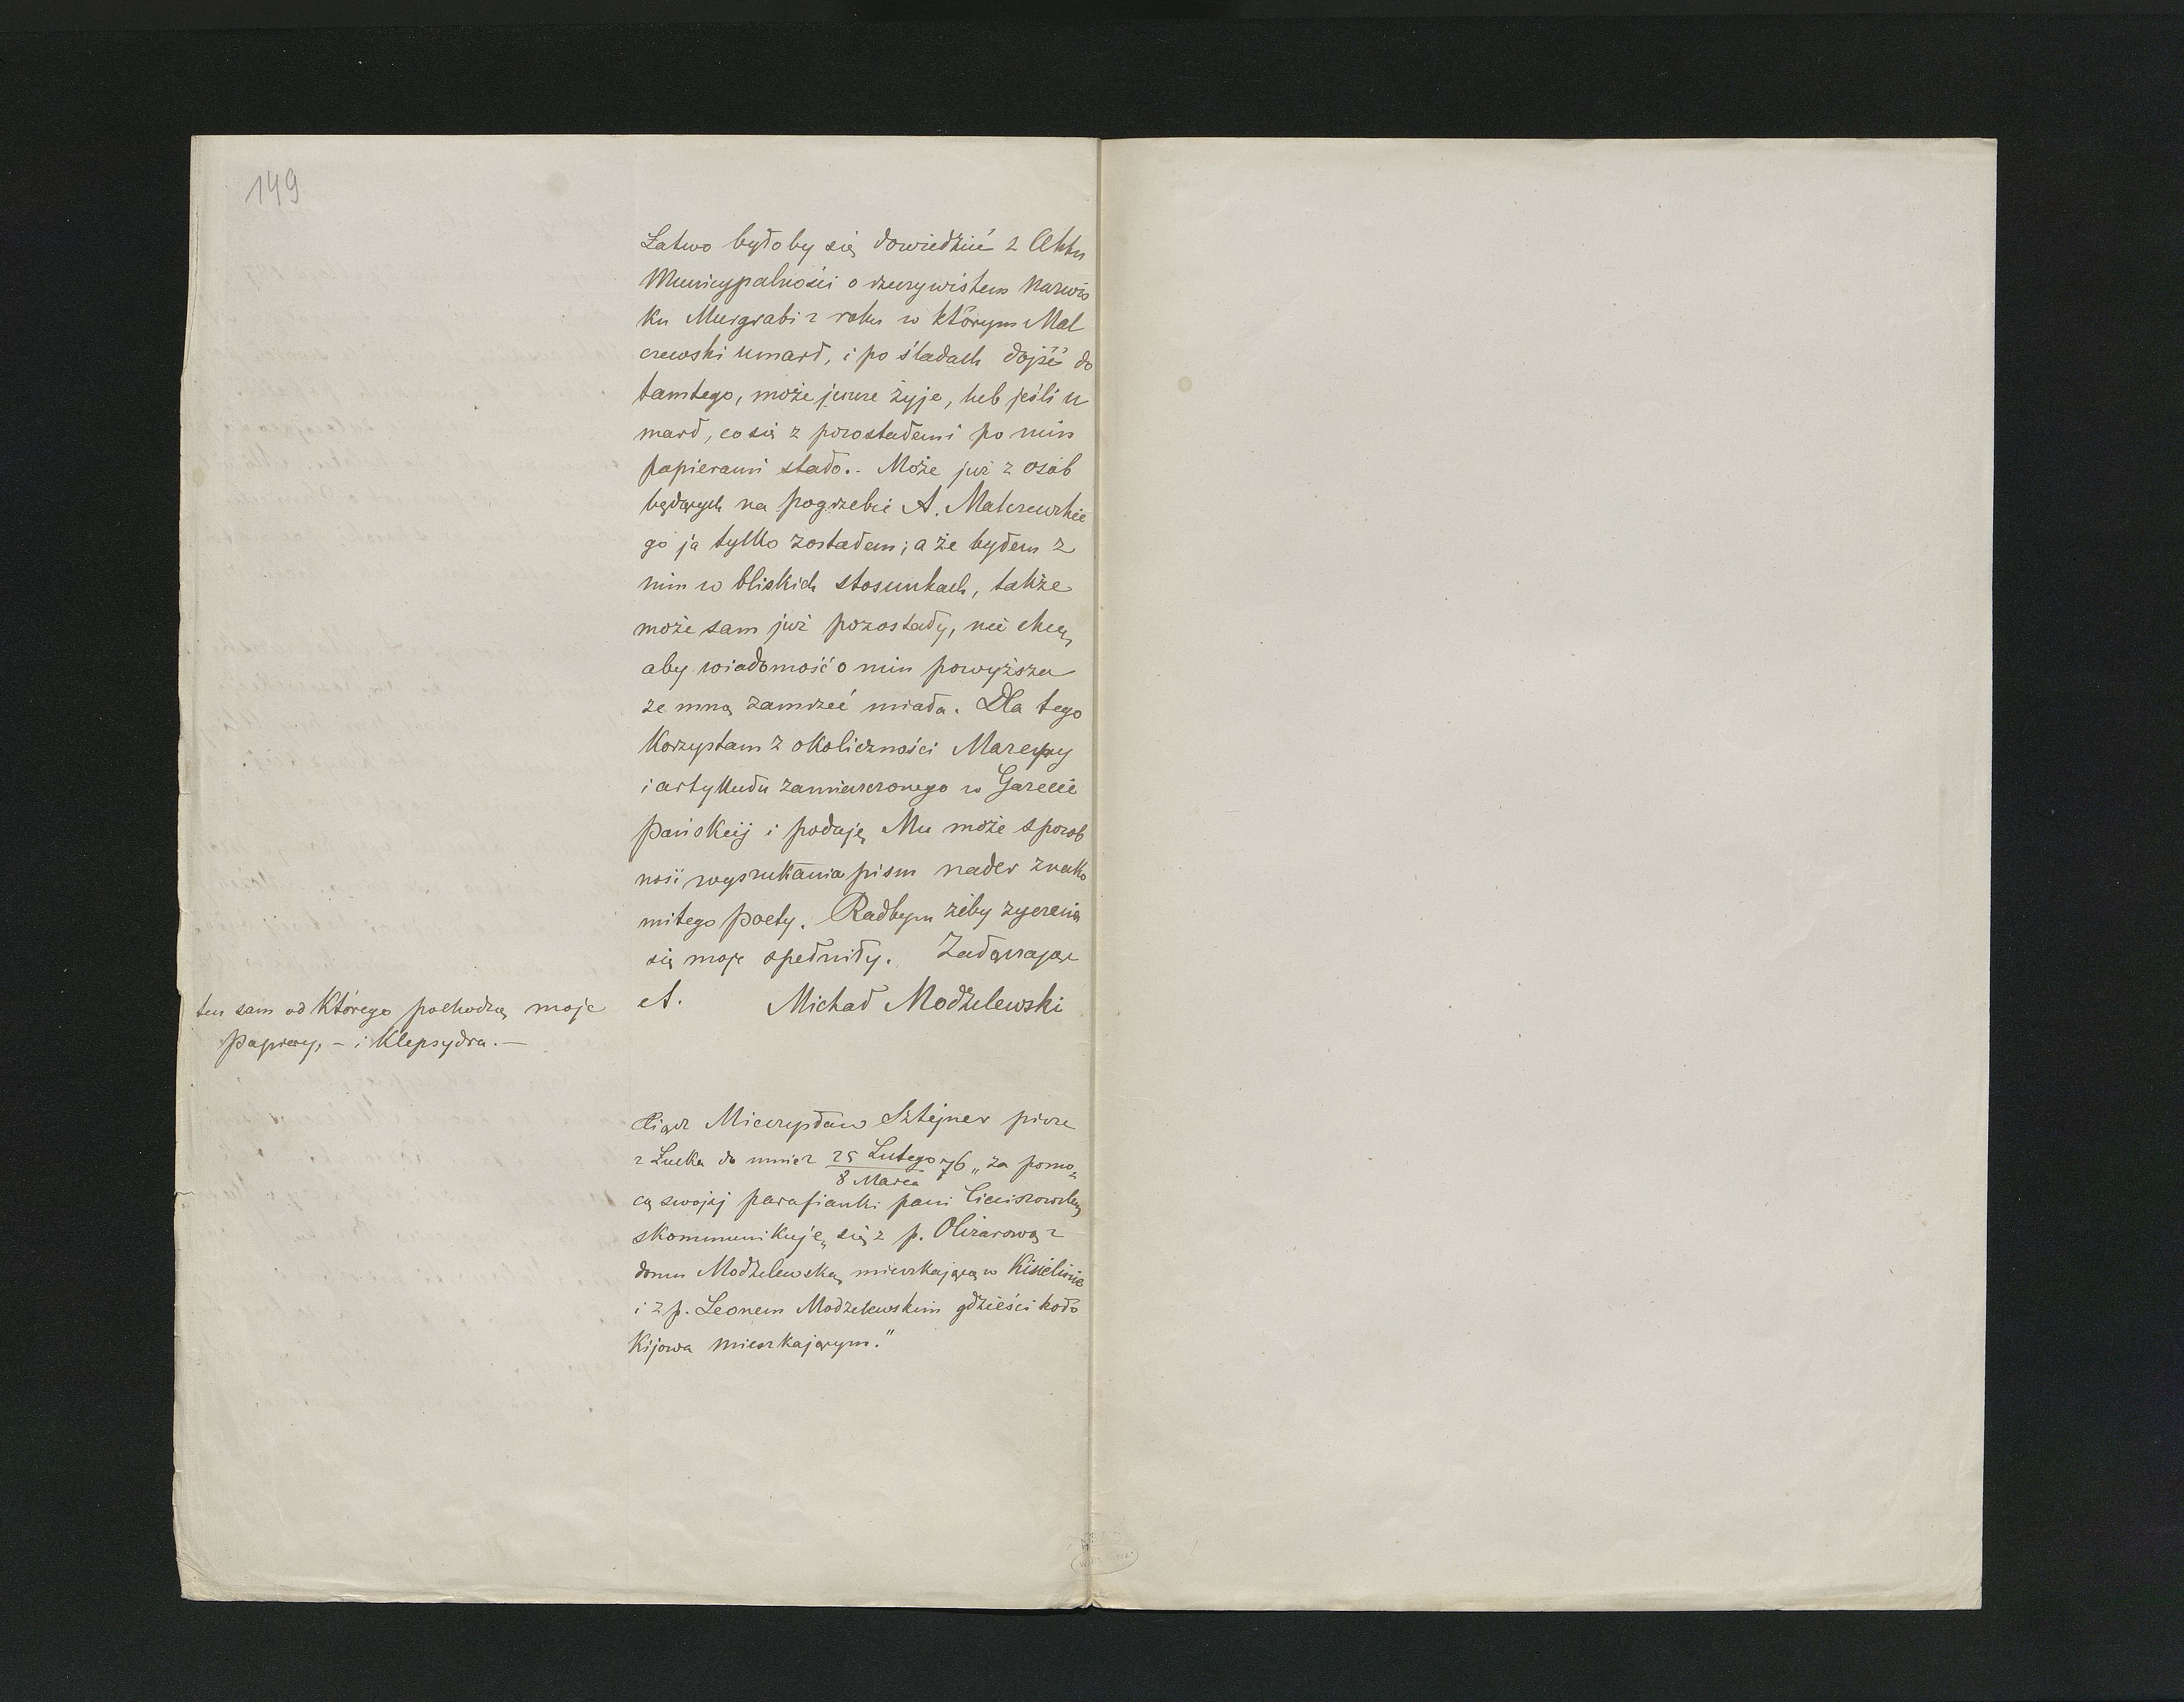 149
Łatwo byłoby się dowiedzić z Aktu
Municypalności o rzeczywistem nazwis
ku Murgrabi z roku w którym Mal
czewski umarł, i po śladach dojść do
tamtego, może jeszcze żyje, lub jeśli u
marł, co się z pozostałemi po nim
papierami stało.. Może już z osób
będących na pogrzebie A. Malczewskie
go ja tylko zostałem; a że byłem z
nim w bliskich stosunkach, także
może sam już pozostały, nie chcę,
aby wiadomość o nim powyższa
ze mną zamrzeć miała. Dla tego
Korzystam z okoliczności
i artykułu zamieszczonego w Gazecie
Pańskiej i podaję Mu może sposob
ność wyszukania pism nader znako
mitego poety. Radbym żeby życzenia
się moje spełniły. Załączając
et. Michał Modzelewski
ten sam od Którego pochodzą moje
papiery, – i Klepsydra. –
Xiądz Mieczysław Sztejner pisze
z Łucka do mnie z 25 Lutego 76 „za pomo-
8 Marca
cą swojej parafianki pani
skommunikuję się z p. Olizarową z
domu Modzelewską mieszkającą w Kisielinie
i z p. Leonem Modzelewskim gdzieści koło
Kijowa mieszkającym."